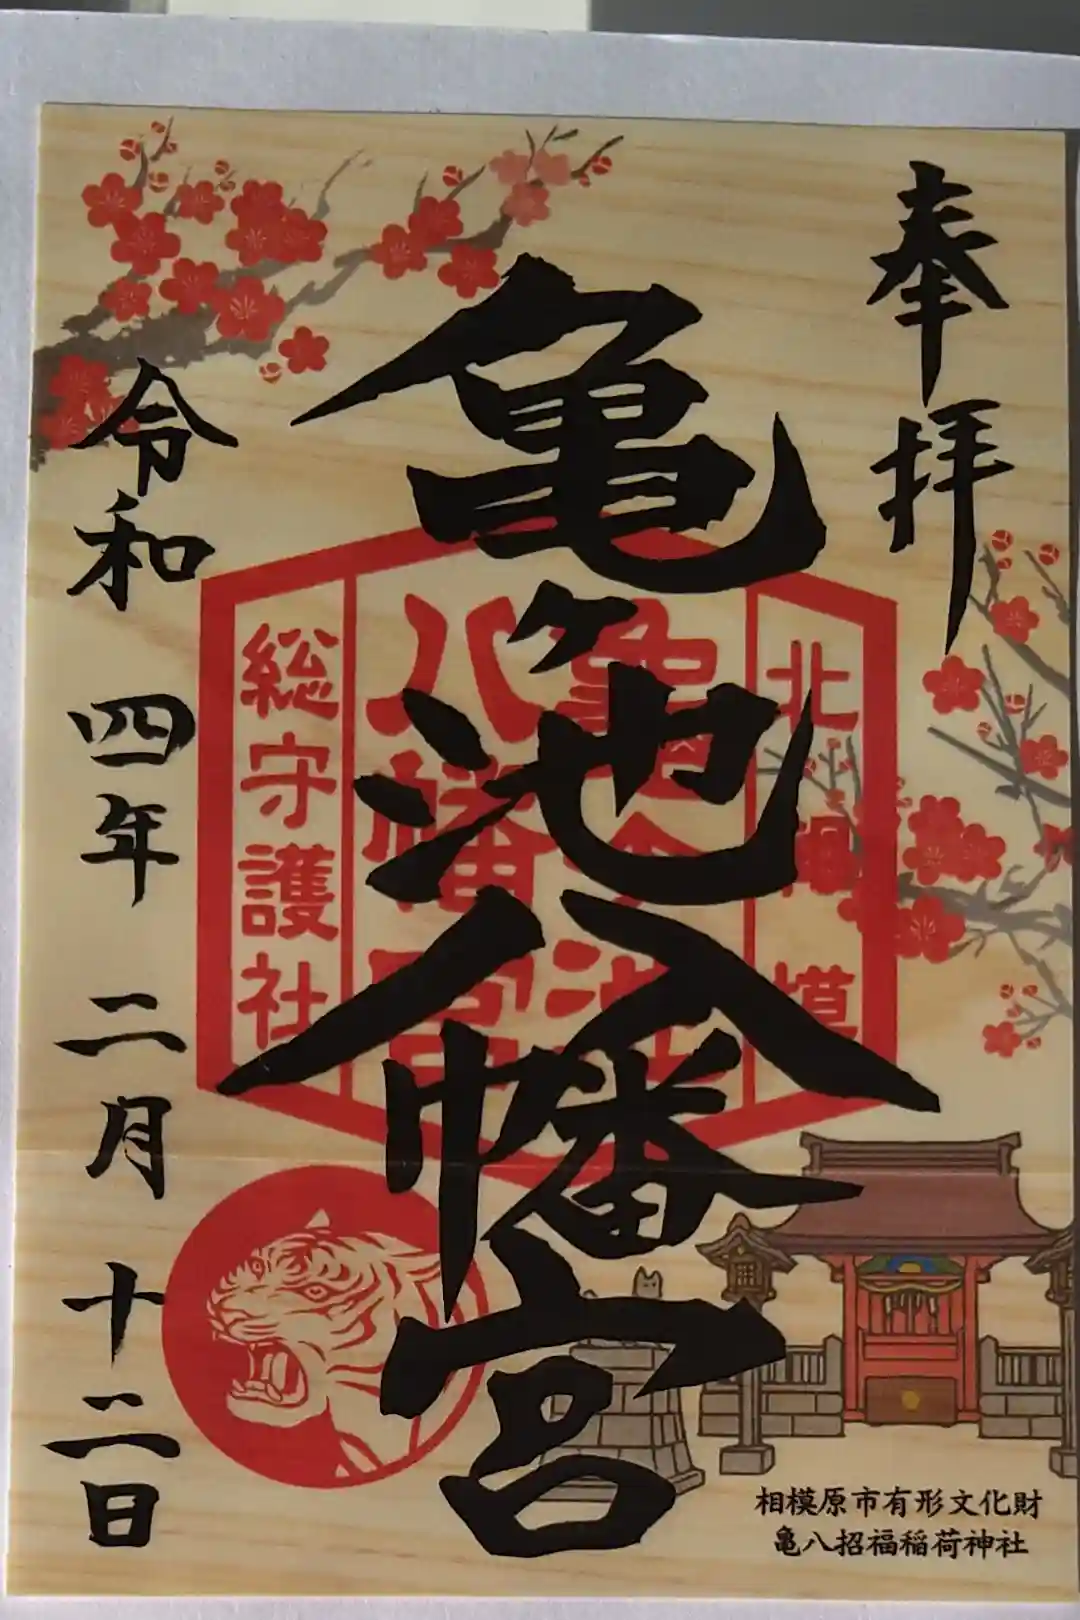 奉拝
亀ヶ池八幡宮
北相模
亀ヶ池
八幡宮
総守護社
令和四年二月十二日
相模原市有形文化財
亀八招福稲荷神社